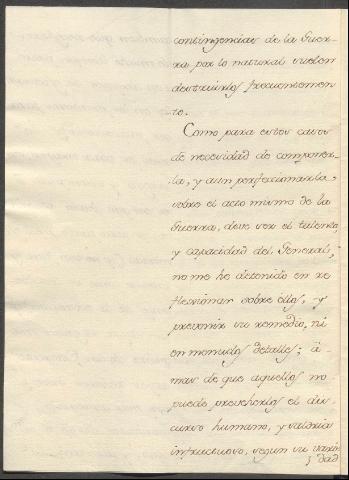 contingencias de la Guer-
ra por lo natural suelen
destruirlos frecuentemen
te.
Como para estos casos
de necesidad de componer-
la, y aun perfeccionarla,
sobre el acto mismo de la
Guerra, deve ser el talento,
y capacidad del General,
no me he detenido en re
flexionar sobre ellos, y
prevenir su remedio, ni
en menudos detalles; â
mas de que aquellos no
puede preveherlos el dis
curso humano, y saldria
infructuoso, segun su varie
dad